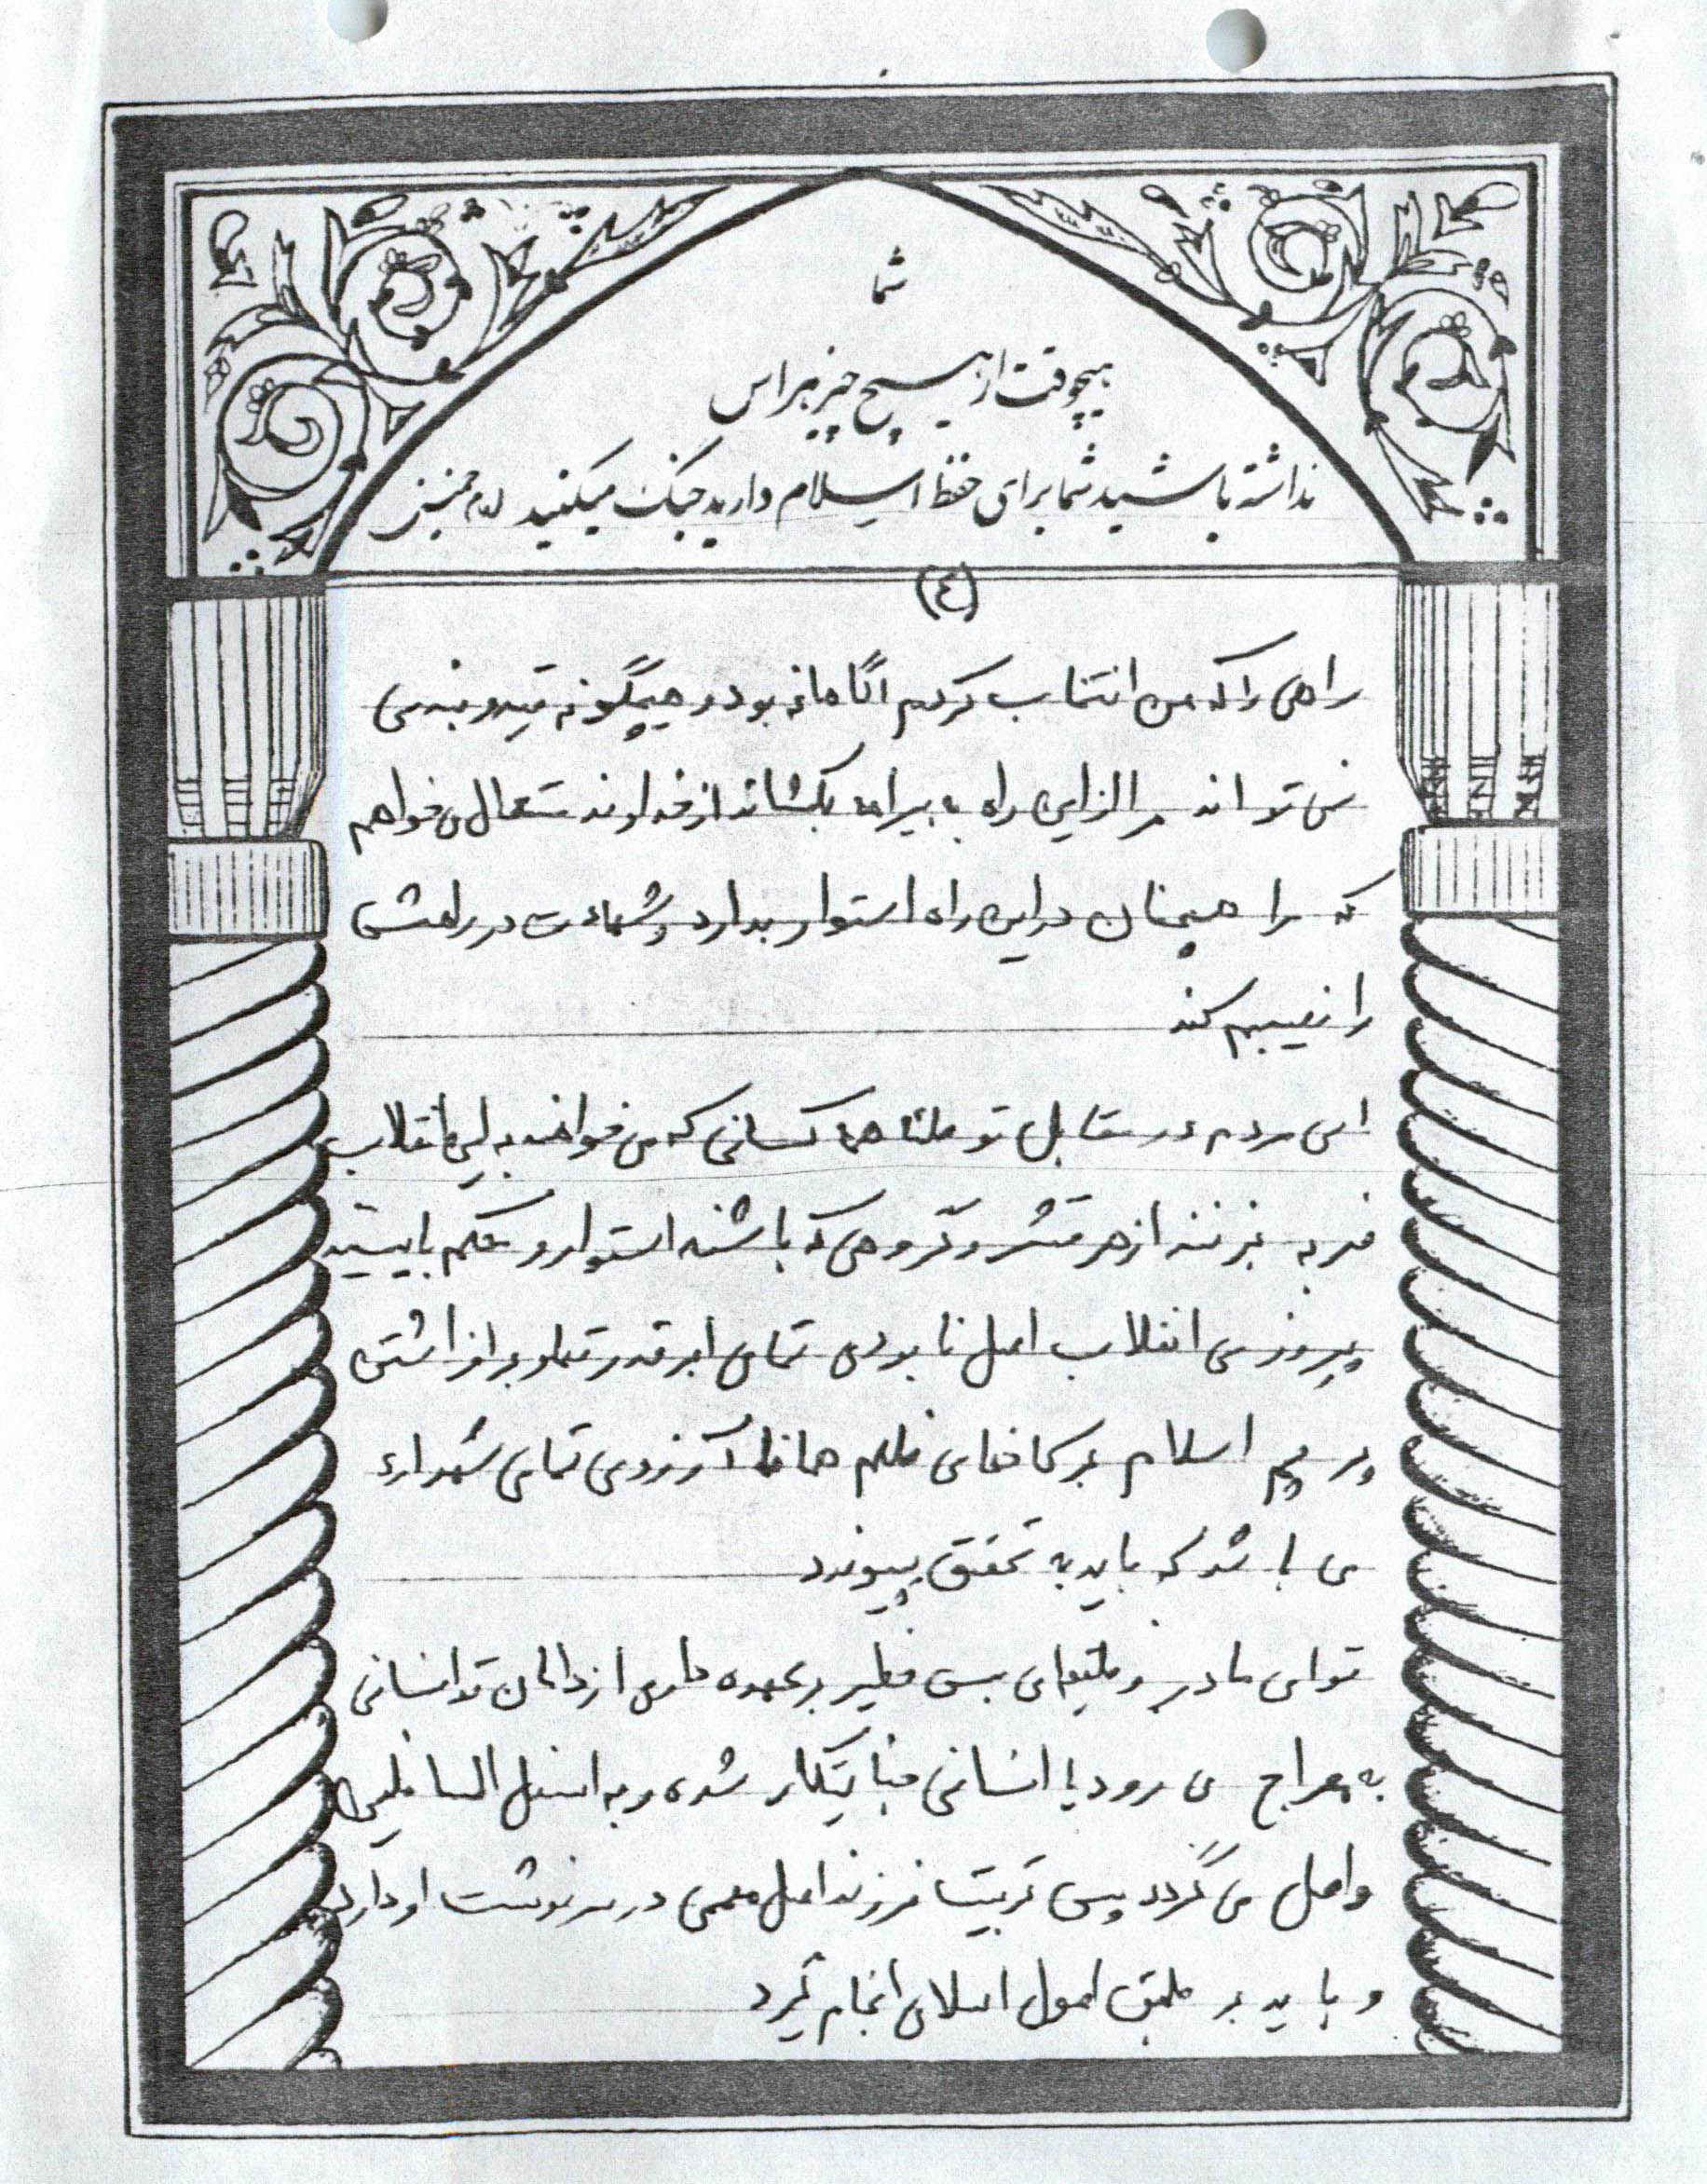 شما
هیچوقت از هیچ چیز هراس
نداشته باشید شما برای حفظ اسلام دارید جنگ میکنید امام خمینی
(٤)
راهی را که من انتخاب کردم آگاهانه بود و هیچگونه قید و بندی
نمی تواند مرا از این راه به بیراهه بکشاند از خداوند متعال می خواهم
که مرا همچنان در این راه استوار بدارد و شهادت در راهش
را نصیبم کند
ای مردم در مقابل کسانی که می خواهند به این انقلاب
ضربه بزنند از هر قشر و گروهی که باشند استوار و محکم بایستید
پیروزی انقلاب اصل نابودی تمامی ابرقدرتها و برافراشتن
پرچم اسلام بر کاخهای ظلم همانا آرزوی تمامی شهداء
می باشد که باید به تحقق بپیوندد
تو ای مادر وظیفه‌ای بس خطیر بر عهده داری از دامان تو انسانی
به معراج می رود یا انسانی جنایتکار شده و به اسفل السافلین
واصل می گردد پس تربیت فرزند اصل مهمی در سرنوشت او دارد
و باید بر طبق اصول اسلامی انجام گیرد